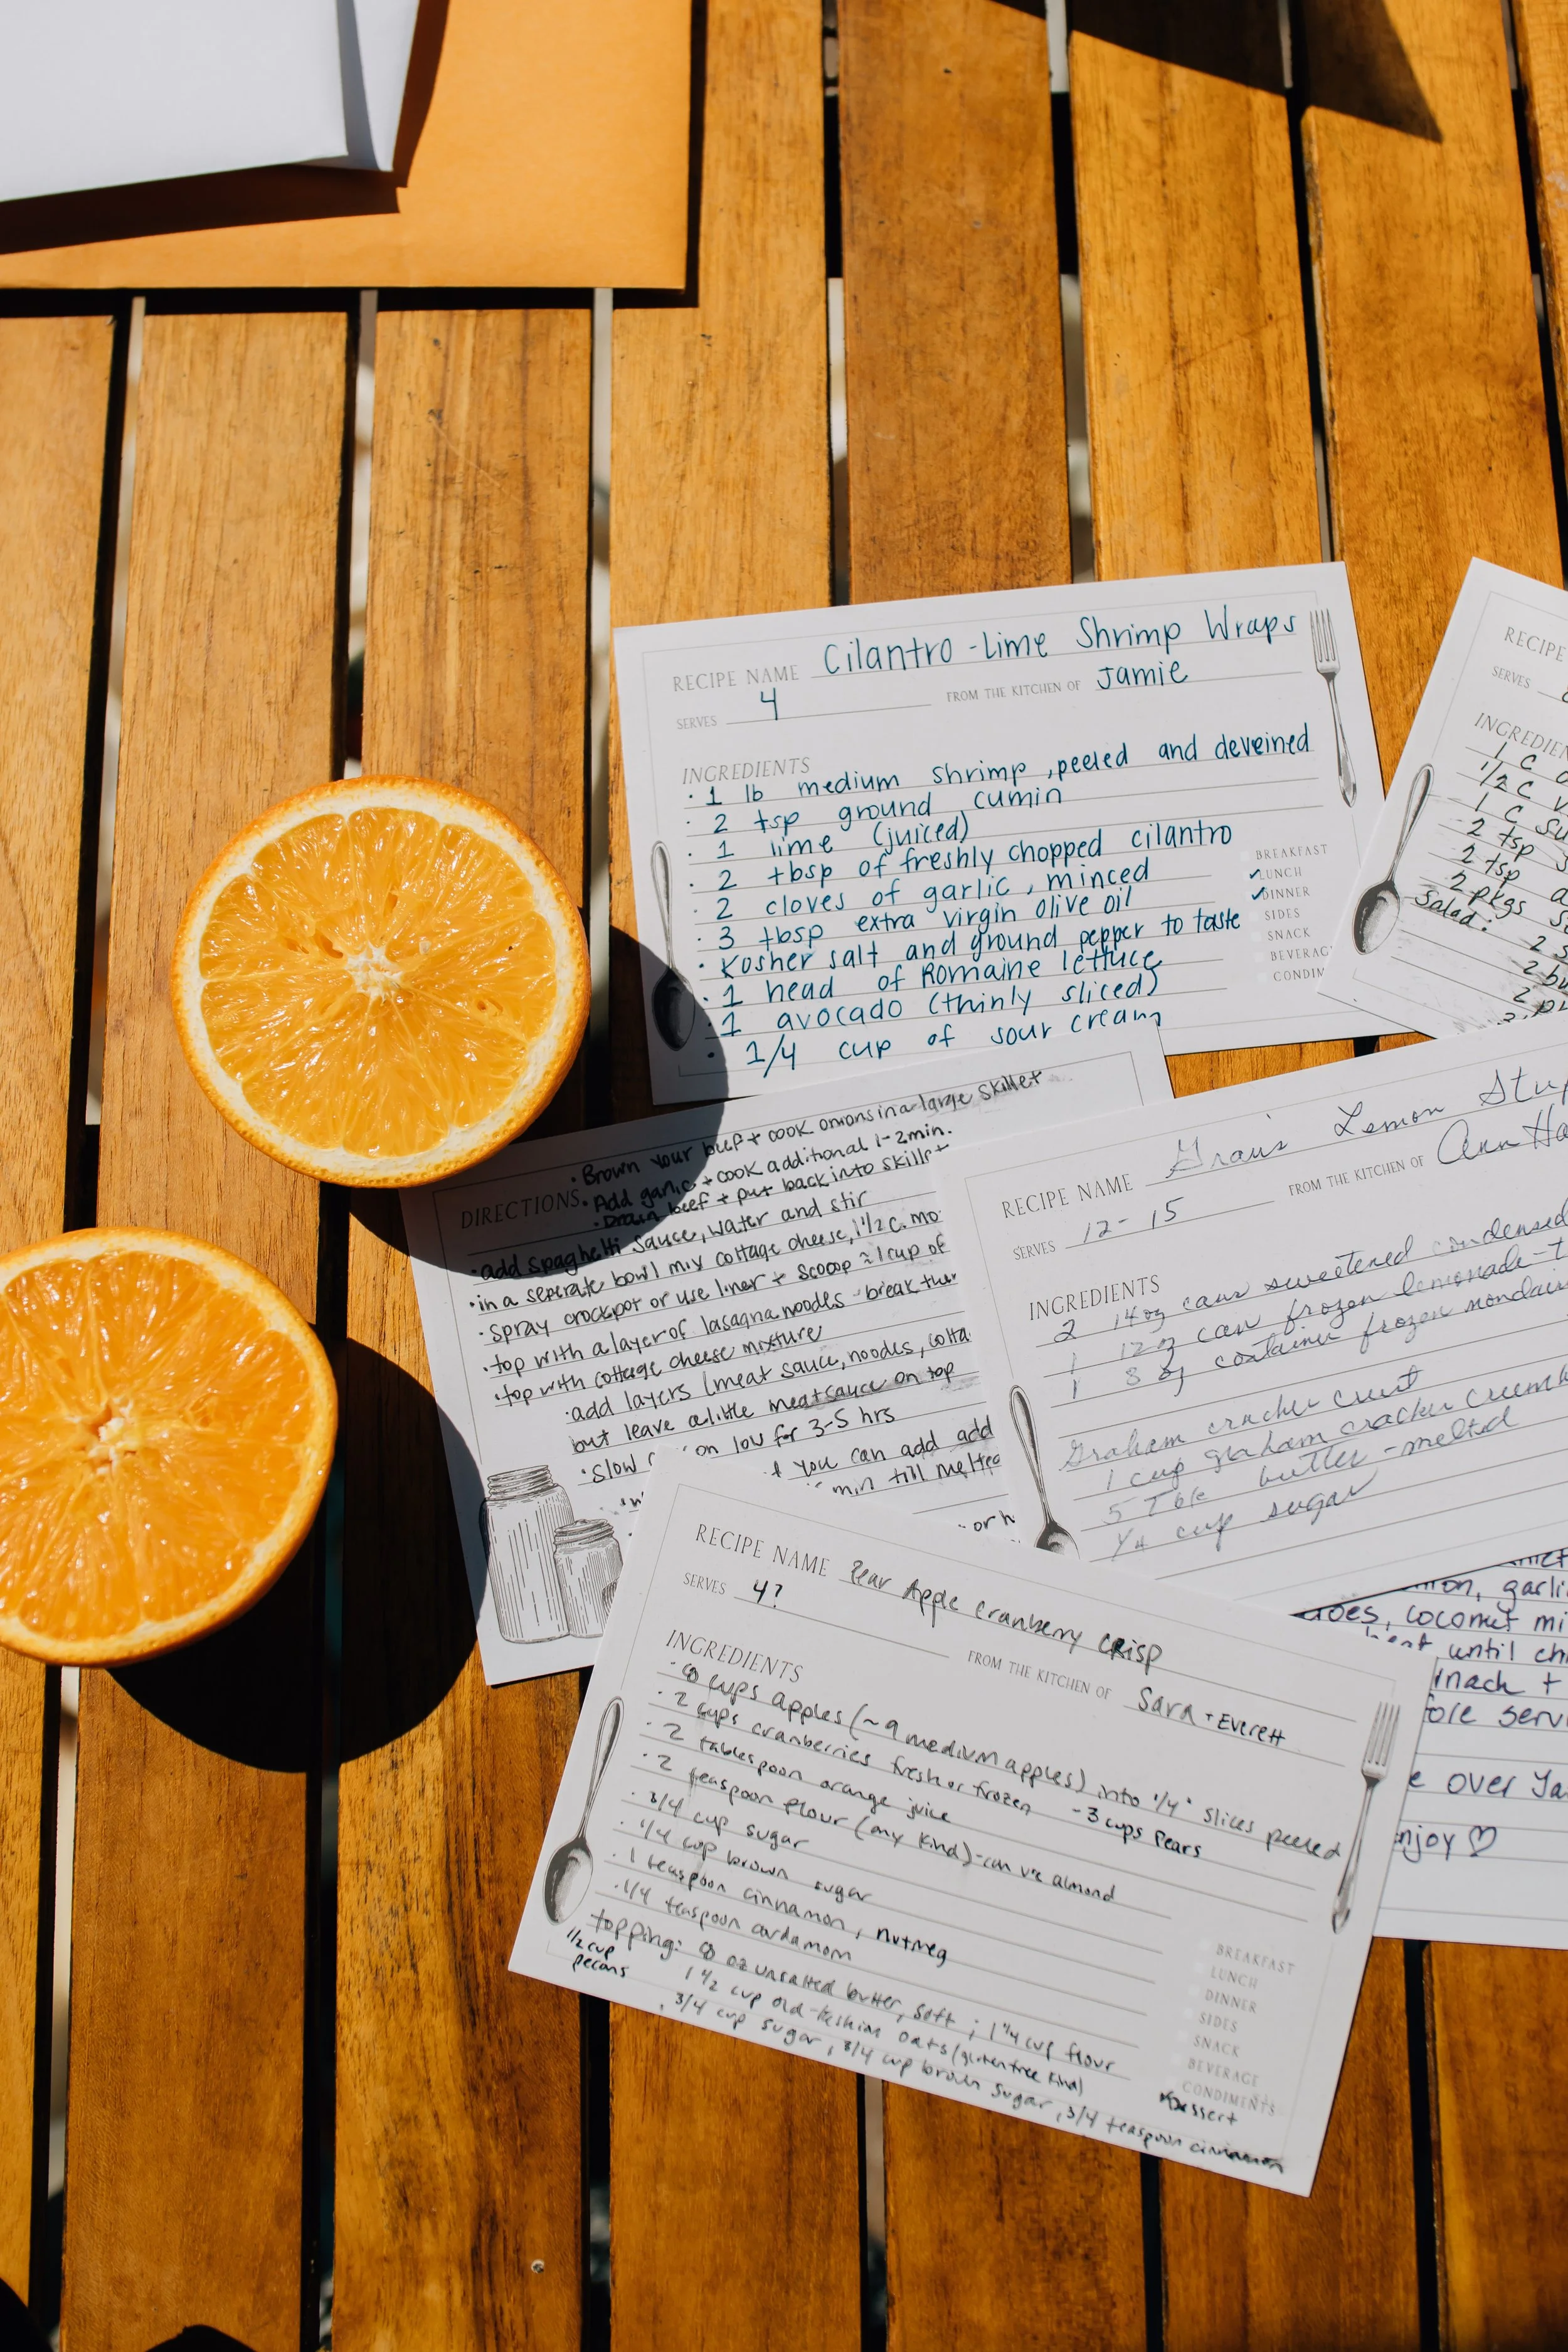 RECIPE NAME Cilantro-Lime Shrimp Wraps
SERVES 4 FROM THE KITCHEN OF Jamie
INGREDIENTS
· 1 lb medium shrimp, peeled and deveined
· 2 tsp ground cumin
· 1 lime (juiced)
· 2 tbsp of freshly chopped cilantro
· 2 cloves of garlic, minced
· 3 tbsp extra virgin olive oil
· Kosher salt and ground pepper to taste
· 1 head of Romaine lettuce
· 1 avocado (thinly sliced)
· 1/4 cup of sour cream
BREAKFAST
✓LUNCH
✓DINNER
SIDES
SNACK
BEVERAG
CONDIM
RECIPE
SERVES
INGREDIEN
1 C
1/2 C
1 C Su
2 tsp
2 tsp
2 pkgs
Salad:
2
2 bu
2
DIRECTIONS
· Brown your beef + cook onions in a large skillet
· Add garlic + cook additional 1-2 min.
· Drain beef + put back into skillet
· add spaghetti sauce, water and stir
· in a seperate bowl mix cottage cheese, 1 1/2 c. mo
· spray crockpot or use liner + scoop ≈ 1 cup of
· top with a layer of lasagna noodles - break them
· top with cottage cheese mixture
· add layers (meat sauce, noodles, cotta
but leave a little meat sauce on top
· Slow on low for 3-5 hrs
you can add add
min till melted
· or
RECIPE NAME Gran's Lemon
SERVES 12-15 FROM THE KITCHEN OF Ann Ha
INGREDIENTS
2 14 oz cans sweetened condensed
1 12 oz can frozen lemonade-t
1 8 oz container frozen nondair
Graham cracker crust
1 cup graham cracker crumb
5 Tbls butter - melted
1/4 cup sugar
RECIPE NAME Pear Apple Cranberry CRisp
SERVES 4? FROM THE KITCHEN OF Sara + Everett
INGREDIENTS
· 8 cups apples (~9 medium apples) into 1/4" slices peeled
· 2 cups cranberries fresh or frozen - 3 cups Pears
· 2 tablespoon orange juice
· 2 teaspoon flour (any kind) - can use almond
· 3/4 cup sugar
· 1/4 cup brown sugar
· 1 teaspoon cinnamon, nutmeg
· 1/4 teaspoon cardamom
topping: 8 oz unsalted butter, soft; 1 1/4 cup flour
1/2 cup pecans
1 1/2 cup old-fashion oats (gluten free kind)
3/4 cup sugar, 3/4 cup brown sugar, 3/4 teaspoon cinnamon
BREAKFAST
LUNCH
DINNER
SIDES
SNACK
BEVERAGE
CONDIMENTS
Dessert
on, garli
oes, coconut mi
until ch
inach +
fore serv
e over Ja
njoy ♡